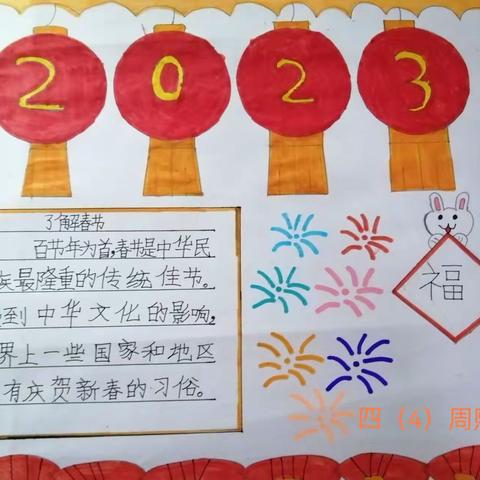 2023
了解春节
百节年为首,春节是中华民
族最隆重的传统佳节。
到中华文化的影响,
界上一些国家和地区
有庆贺新春的习俗。
福
四（4）周